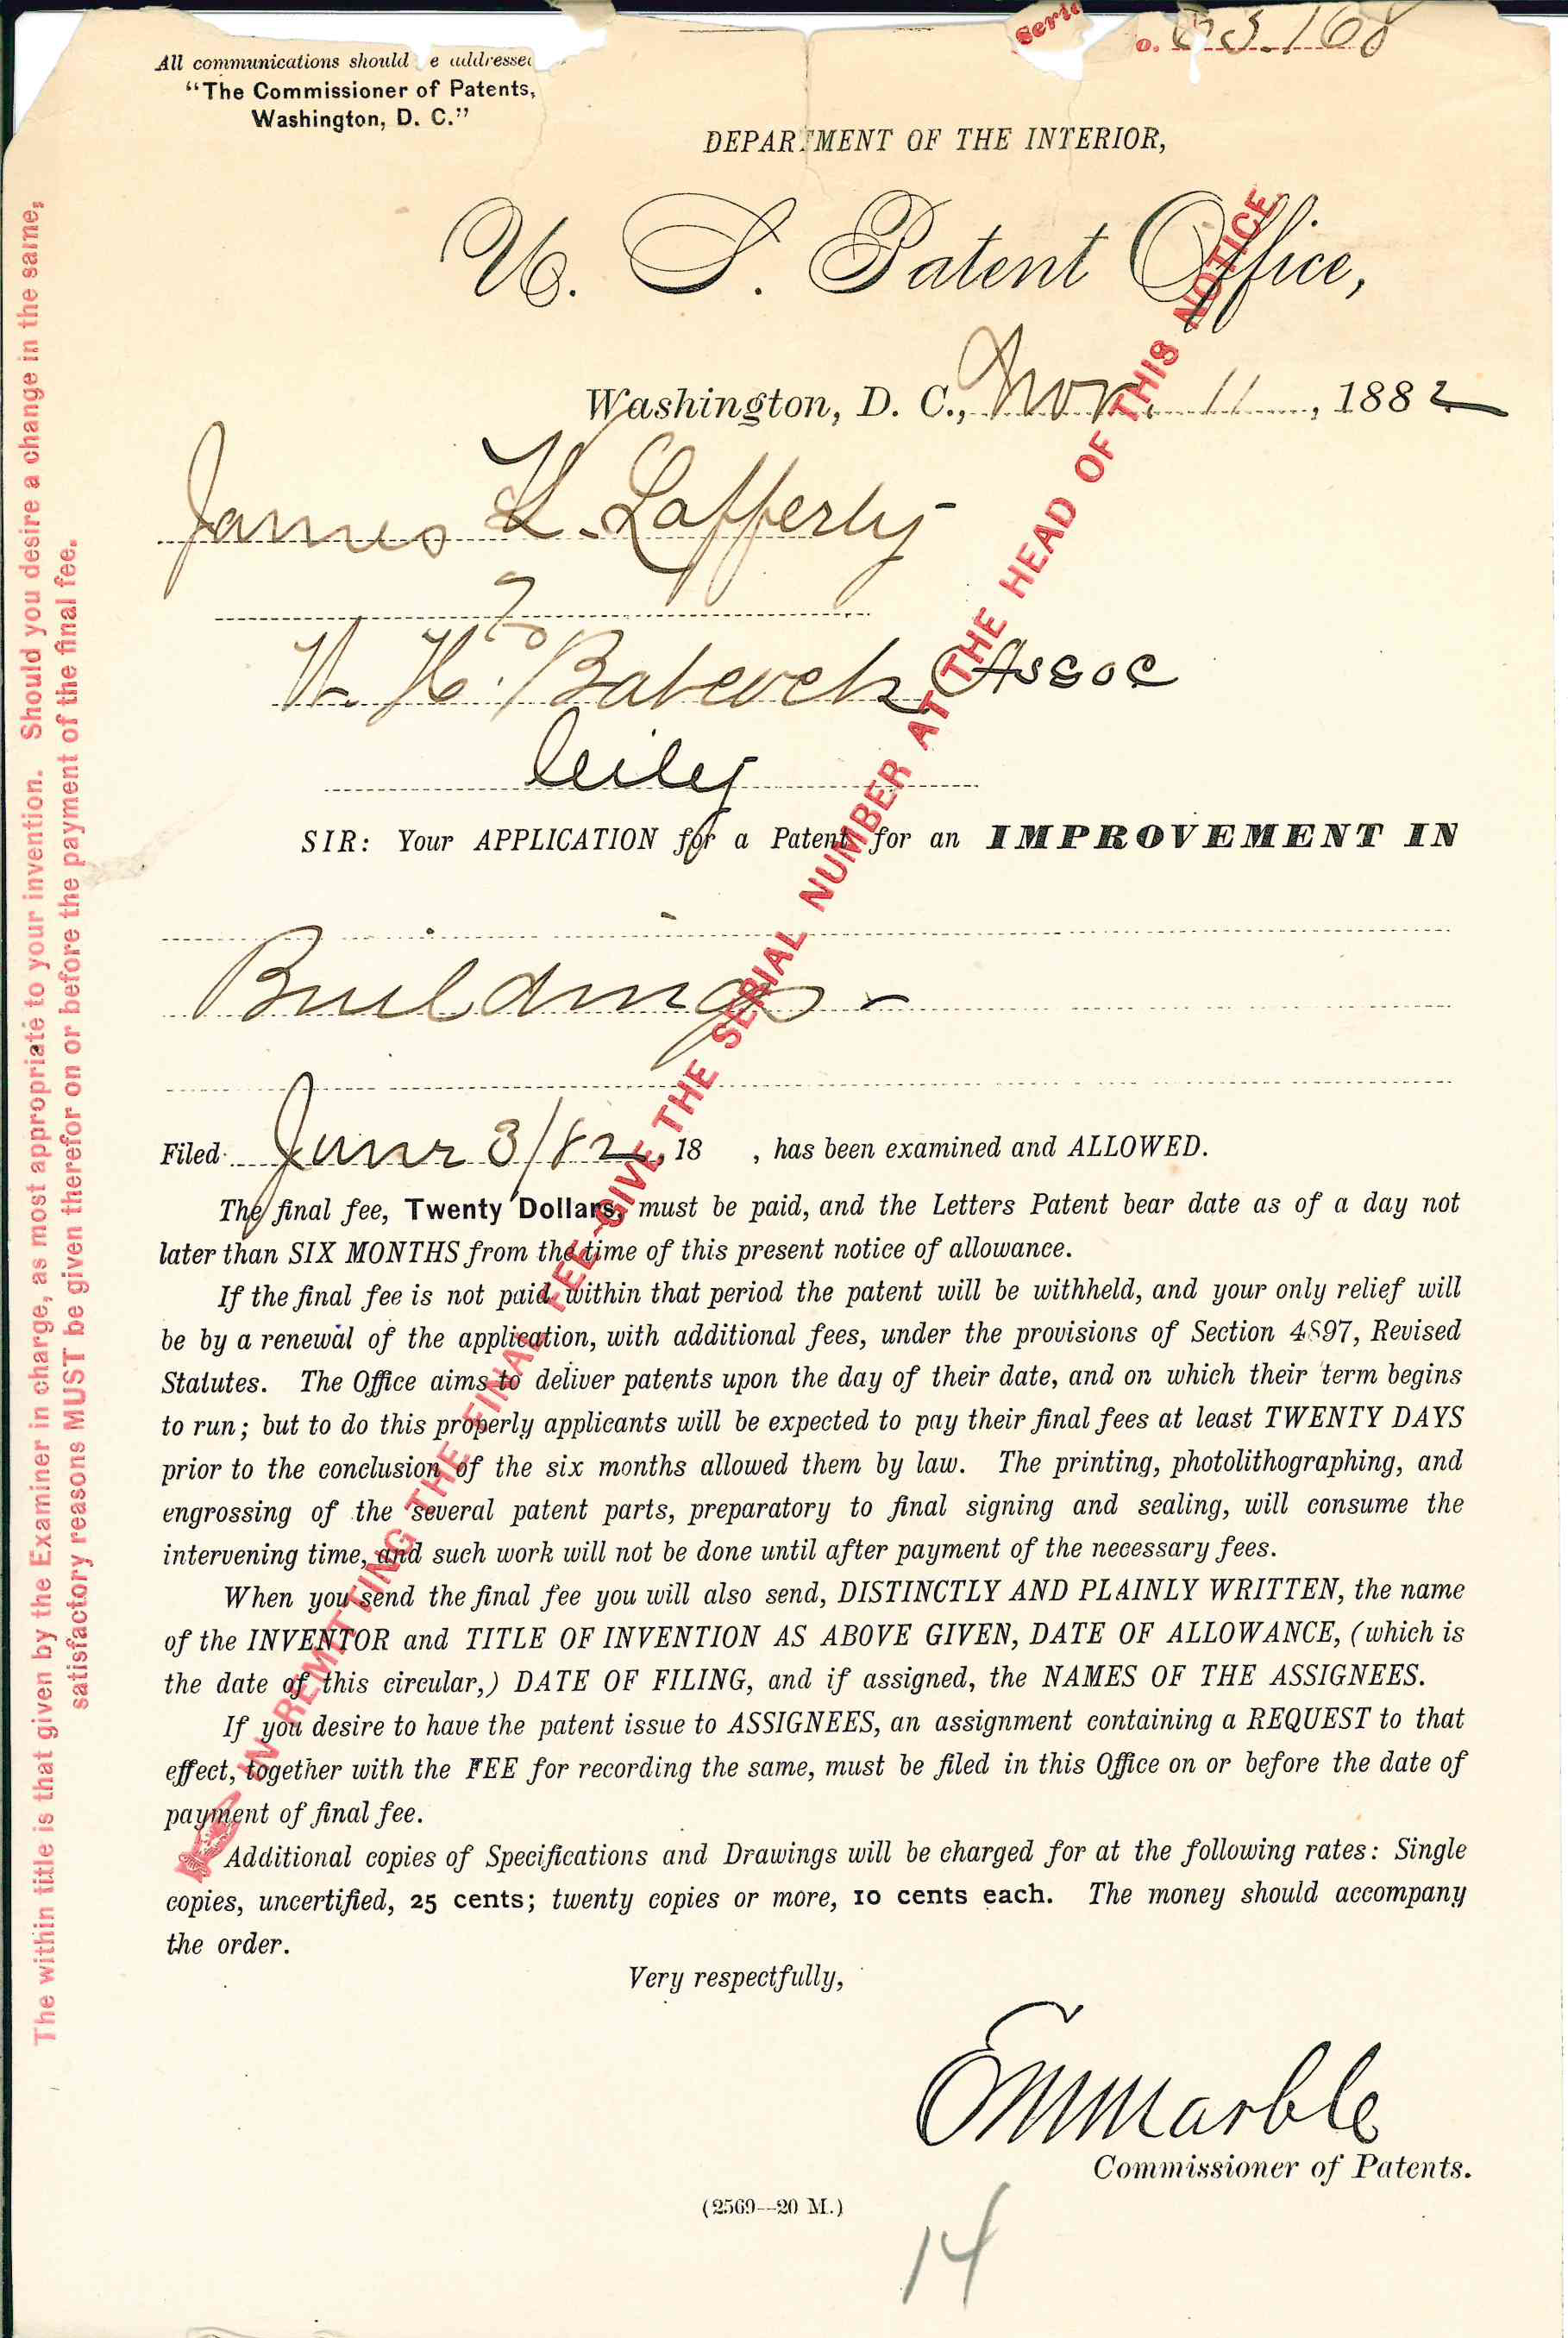 Serial No. 63.168
All communications should e addressed
"The Commissioner of Patents,
Washington, D. C."
DEPARTMENT OF THE INTERIOR,
U. S. Patent Office,
Washington, D. C., Nov. 11, 1882
James V. Lafferty
℅
W. H. Babcock Assoc
City
SIR: Your APPLICATION for a Patent for an IMPROVEMENT IN
Buildings
Filed June 3/82, 18 , has been examined and ALLOWED.
The final fee, Twenty Dollars, must be paid, and the Letters Patent bear date as of a day not
later than SIX MONTHS from the time of this present notice of allowance.
If the final fee is not paid within that period the patent will be withheld, and your only relief will
be by a renewal of the application, with additional fees, under the provisions of Section 4897, Revised
Statutes. The Office aims to deliver patents upon the day of their date, and on which their term begins
to run; but to do this properly applicants will be expected to pay their final fees at least TWENTY DAYS
prior to the conclusion of the six months allowed them by law. The printing, photolithographing, and
engrossing of the several patent parts, preparatory to final signing and sealing, will consume the
intervening time, and such work will not be done until after payment of the necessary fees.
When you send the final fee you will also send, DISTINCTLY AND PLAINLY WRITTEN, the name
of the INVENTOR and TITLE OF INVENTION AS ABOVE GIVEN, DATE OF ALLOWANCE, (which is
the date of this circular,) DATE OF FILING, and if assigned, the NAMES OF THE ASSIGNEES.
If you desire to have the patent issue to ASSIGNEES, an assignment containing a REQUEST to that
effect, together with the FEE for recording the same, must be filed in this Office on or before the date of
payment of final fee.
Additional copies of Specifications and Drawings will be charged for at the following rates: Single
copies, uncertified, 25 cents; twenty copies or more, 10 cents each. The money should accompany
the order.
Very respectfully,
E M Marble
Commissioner of Patents.
(2569--20 M.)
14
IN REMITTING THE FINAL FEE GIVE THE SERIAL NUMBER AT THE HEAD OF THIS NOTICE
The within title is that given by the Examiner in charge, as most appropriate to your invention. Should you desire a change in the same,
satisfactory reasons MUST be given therefor on or before the payment of the final fee.